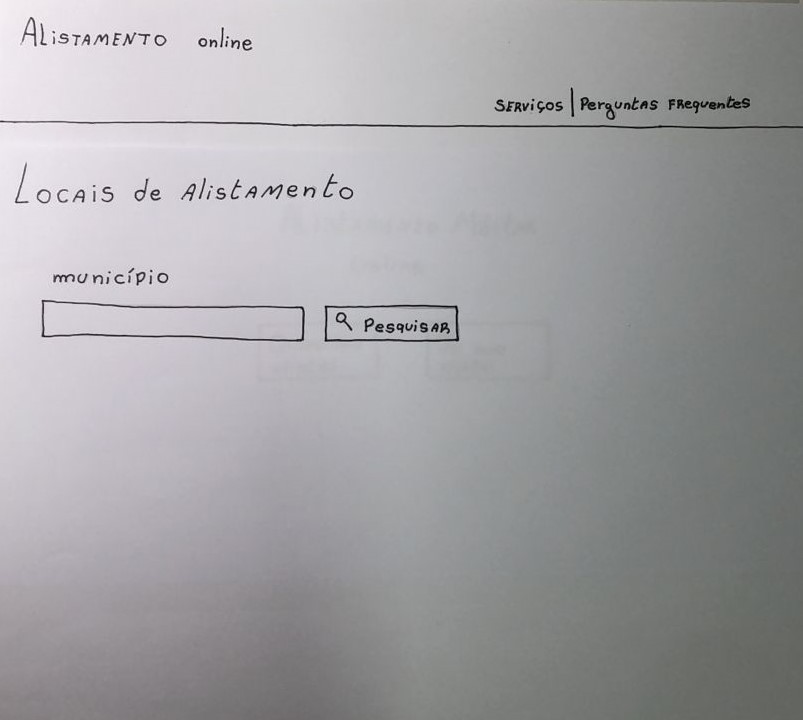 Alistamento online
Serviços | Perguntas Frequentes
Locais de Alistamento
município
Pesquisar